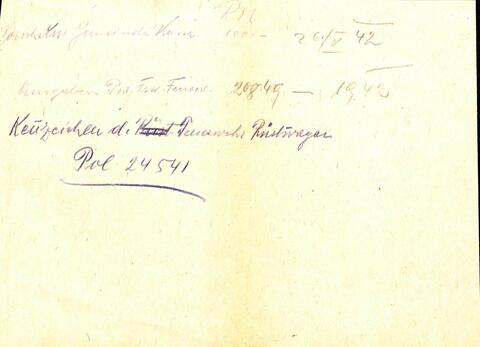 RM
Gemeinde 100.- 26/V 42
Ausgaben Frw. Feuerw. 208.49 — 1942
Kenzeichen d. Rüst. Feuerwehr Rüstwagen
Pol 24541